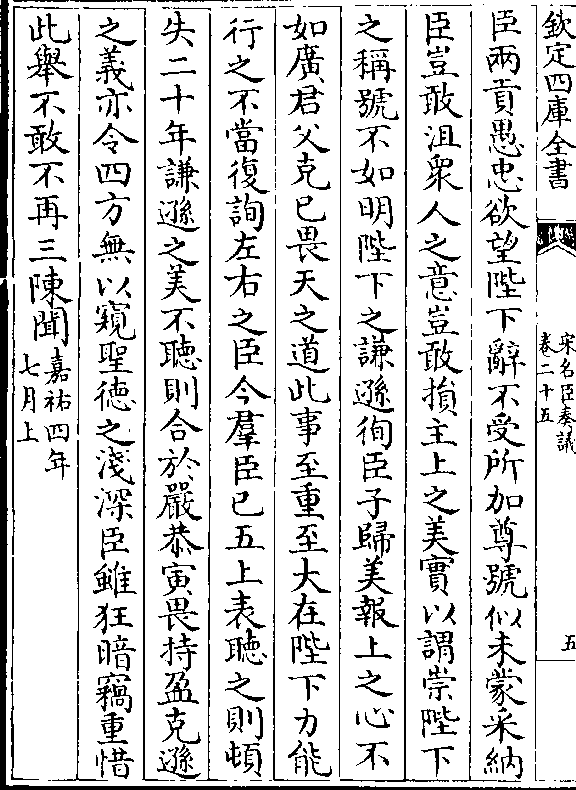 欽定四庫全書
宋名臣奏議
卷二十五
五
臣兩貢愚忠欲望陛下辭不受所加尊號似未蒙采納
臣豈敢沮衆人之意豈敢損主上之美實以謂崇陛下
之稱號不如明陛下之謙遜徇臣子歸美報上之心不
如廣君父克已畏天之道此事至重至大在陛下力能
行之不當復詢左右之臣今羣臣已五上表聽之則頓
失二十年謙遜之美不聽則合於嚴恭寅畏持盈克遜
之義亦令四方無以窺聖德之淺深臣雖狂暗竊重惜
此舉不敢不再三陳聞嘉祐四年
七月上